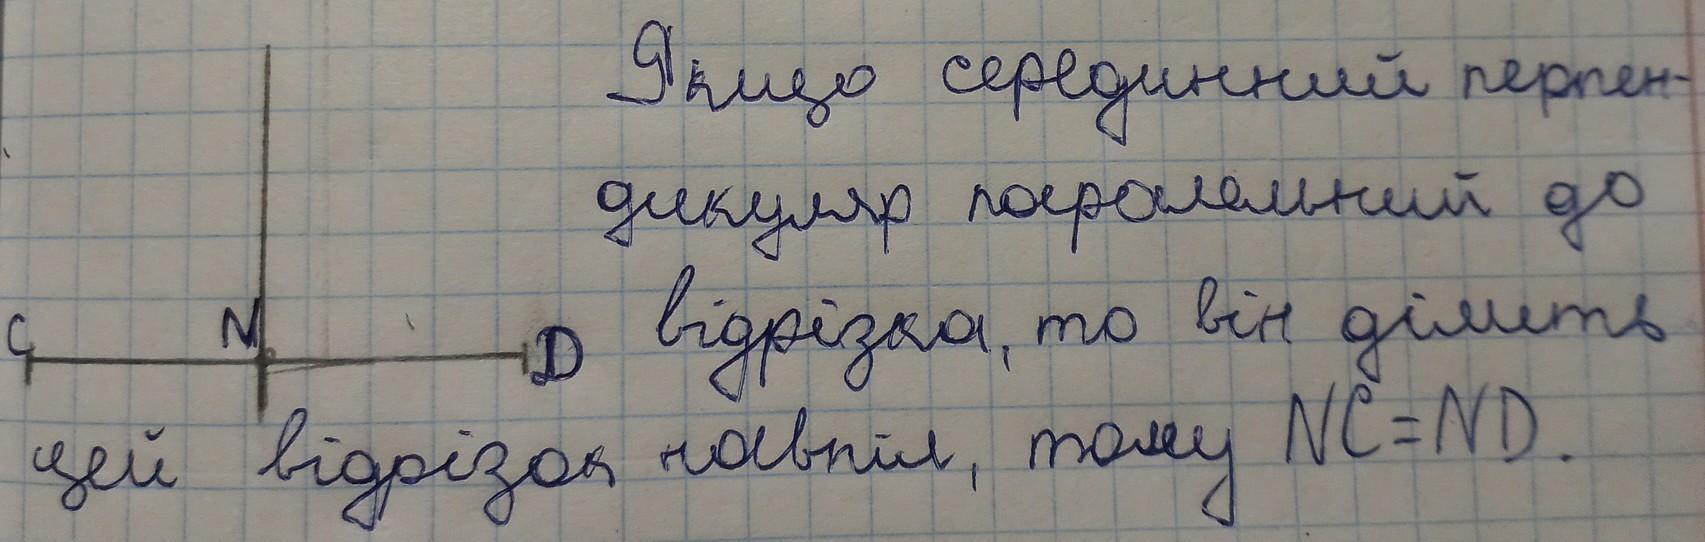 Якщо серединний перпен-
дикуляр паралельний до
C N D відрізка, то він ділить
цей відрізок навпіл, тому NC=ND.